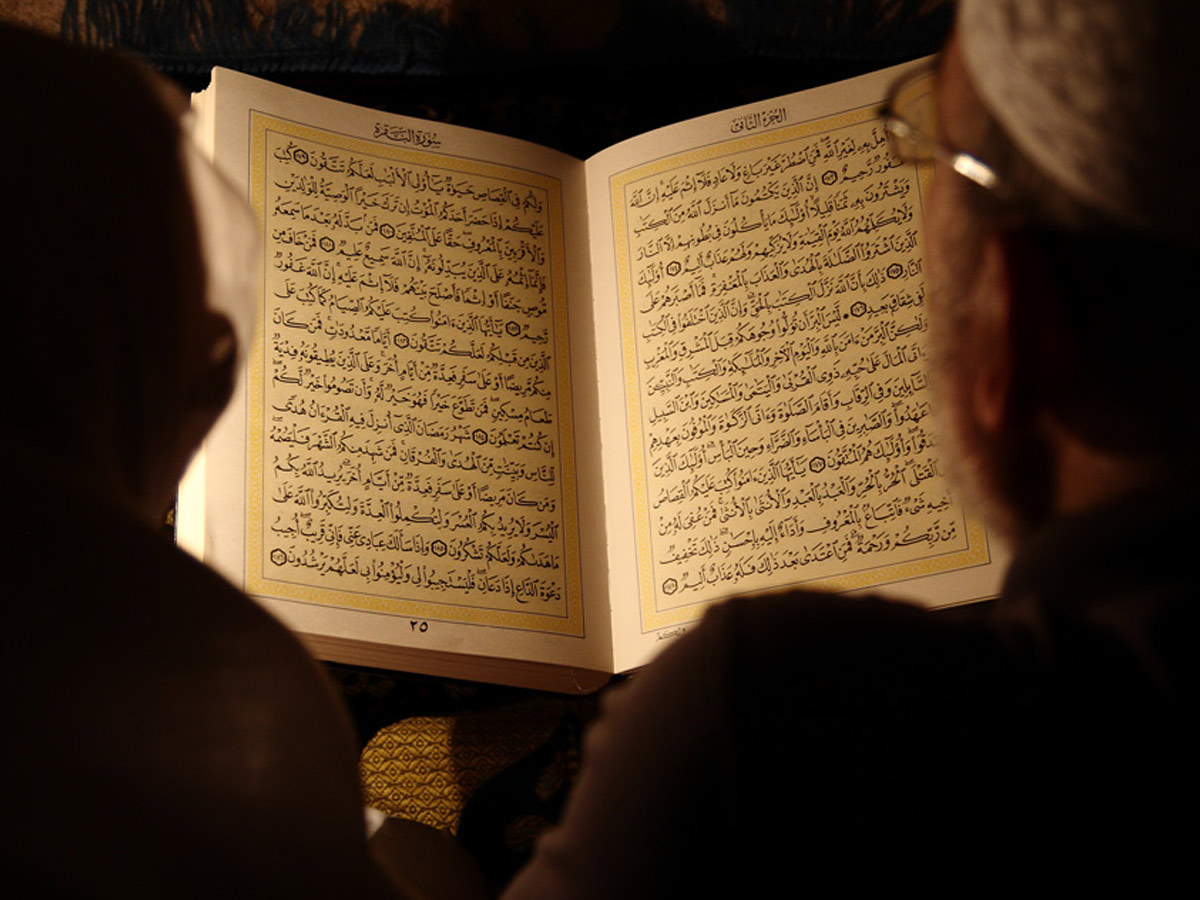 الجزء الثاني
أُهِلَّ بِهِ لِغَيْرِ اللَّهِ فَمَنِ اضْطُرَّ غَيْرَ بَاغٍ وَلَا عَادٍ فَلَا إِثْمَ عَلَيْهِ إِنَّ اللَّهَ
غَفُورٌ رَحِيمٌ ١٧٣ إِنَّ الَّذِينَ يَكْتُمُونَ مَا أَنْزَلَ اللَّهُ مِنَ الْكِتَٰبِ
وَيَشْتَرُونَ بِهِ ثَمَنًا قَلِيلًا أُولَٰئِكَ مَا يَأْكُلُونَ فِي بُطُونِهِمْ إِلَّا النَّارَ
وَلَا يُكَلِّمُهُمُ اللَّهُ يَوْمَ الْقِيَٰمَةِ وَلَا يُزَكِّيهِمْ وَلَهُمْ عَذَابٌ أَلِيمٌ ١٧٤ أُولَٰئِكَ
الَّذِينَ اشْتَرَوُا الضَّلَٰلَةَ بِالْهُدَىٰ وَالْعَذَابَ بِالْمَغْفِرَةِ فَمَا أَصْبَرَهُمْ عَلَى
النَّارِ ١٧٥ ذَٰلِكَ بِأَنَّ اللَّهَ نَزَّلَ الْكِتَٰبَ بِالْحَقِّ وَإِنَّ الَّذِينَ اخْتَلَفُوا فِي الْكِتَٰبِ
لَفِي شِقَاقٍ بَعِيدٍ ١٧٦ لَيْسَ الْبِرَّ أَنْ تُوَلُّوا وُجُوهَكُمْ قِبَلَ الْمَشْرِقِ وَالْمَغْرِبِ
وَلَٰكِنَّ الْبِرَّ مَنْ ءَامَنَ بِاللَّهِ وَالْيَوْمِ الْآخِرِ وَالْمَلَٰئِكَةِ وَالْكِتَٰبِ وَالنَّبِيِّنَ
الْمَالَ عَلَىٰ حُبِّهِ ذَوِي الْقُرْبَىٰ وَالْيَتَٰمَىٰ وَالْمَسَٰكِينَ وَابْنَ السَّبِيلِ
السَّائِلِينَ وَفِي الرِّقَابِ وَأَقَامَ الصَّلَوٰةَ وَءَاتَى الزَّكَوٰةَ وَالْمُوفُونَ بِعَهْدِهِمْ
عَٰهَدُوا وَالصَّٰبِرِينَ فِي الْبَأْسَاءِ وَالضَّرَّاءِ وَحِينَ الْبَأْسِ أُولَٰئِكَ الَّذِينَ
وَأُولَٰئِكَ هُمُ الْمُتَّقُونَ ١٧٧ يَٰأَيُّهَا الَّذِينَ ءَامَنُوا كُتِبَ عَلَيْكُمُ الْقِصَاصُ
الْقَتْلَى الْحُرُّ بِالْحُرِّ وَالْعَبْدُ بِالْعَبْدِ وَالْأُنْثَىٰ بِالْأُنْثَىٰ فَمَنْ عُفِيَ لَهُ مِنْ
أَخِيهِ شَيْءٌ فَاتِّبَاعٌ بِالْمَعْرُوفِ وَأَدَاءٌ إِلَيْهِ بِإِحْسَٰنٍ ذَٰلِكَ تَخْفِيفٌ
مِنْ رَبِّكُمْ وَرَحْمَةٌ فَمَنِ اعْتَدَىٰ بَعْدَ ذَٰلِكَ فَلَهُ عَذَابٌ أَلِيمٌ ١٧٨
ولكم
سورة البقرة
وَلَكُمْ فِي الْقِصَاصِ حَيَوٰةٌ يَٰأُولِي الْأَلْبَٰبِ لَعَلَّكُمْ تَتَّقُونَ ١٧٩ كُتِبَ
عَلَيْكُمْ إِذَا حَضَرَ أَحَدَكُمُ الْمَوْتُ إِنْ تَرَكَ خَيْرًا الْوَصِيَّةُ لِلْوَٰلِدَيْنِ
وَالْأَقْرَبِينَ بِالْمَعْرُوفِ حَقًّا عَلَى الْمُتَّقِينَ ١٨٠ فَمَنْ بَدَّلَهُ بَعْدَمَا سَمِعَهُ
فَإِنَّمَا إِثْمُهُ عَلَى الَّذِينَ يُبَدِّلُونَهُ إِنَّ اللَّهَ سَمِيعٌ عَلِيمٌ ١٨١ فَمَنْ خَافَ مِنْ
مُوصٍ جَنَفًا أَوْ إِثْمًا فَأَصْلَحَ بَيْنَهُمْ فَلَا إِثْمَ عَلَيْهِ إِنَّ اللَّهَ غَفُورٌ
رَحِيمٌ ١٨٢ يَٰأَيُّهَا الَّذِينَ ءَامَنُوا كُتِبَ عَلَيْكُمُ الصِّيَامُ كَمَا كُتِبَ عَلَى
الَّذِينَ مِنْ قَبْلِكُمْ لَعَلَّكُمْ تَتَّقُونَ ١٨٣ أَيَّامًا مَعْدُودَٰتٍ فَمَنْ كَانَ
مِنْكُمْ مَرِيضًا أَوْ عَلَىٰ سَفَرٍ فَعِدَّةٌ مِنْ أَيَّامٍ أُخَرَ وَعَلَى الَّذِينَ يُطِيقُونَهُ فِدْيَةٌ
طَعَامُ مِسْكِينٍ فَمَنْ تَطَوَّعَ خَيْرًا فَهُوَ خَيْرٌ لَهُ وَأَنْ تَصُومُوا خَيْرٌ لَكُمْ
إِنْ كُنْتُمْ تَعْلَمُونَ ١٨٤ شَهْرُ رَمَضَانَ الَّذِي أُنْزِلَ فِيهِ الْقُرْءَانُ هُدًى
لِلنَّاسِ وَبَيِّنَٰتٍ مِنَ الْهُدَىٰ وَالْفُرْقَانِ فَمَنْ شَهِدَ مِنْكُمُ الشَّهْرَ فَلْيَصُمْهُ
وَمَنْ كَانَ مَرِيضًا أَوْ عَلَىٰ سَفَرٍ فَعِدَّةٌ مِنْ أَيَّامٍ أُخَرَ يُرِيدُ اللَّهُ بِكُمُ
الْيُسْرَ وَلَا يُرِيدُ بِكُمُ الْعُسْرَ وَلِتُكْمِلُوا الْعِدَّةَ وَلِتُكَبِّرُوا اللَّهَ عَلَىٰ
مَا هَدَىٰكُمْ وَلَعَلَّكُمْ تَشْكُرُونَ ١٨٥ وَإِذَا سَأَلَكَ عِبَادِي عَنِّي فَإِنِّي قَرِيبٌ أُجِيبُ
دَعْوَةَ الدَّاعِ إِذَا دَعَانِ فَلْيَسْتَجِيبُوا لِي وَلْيُؤْمِنُوا بِي لَعَلَّهُمْ يَرْشُدُونَ ١٨٦
٢٥